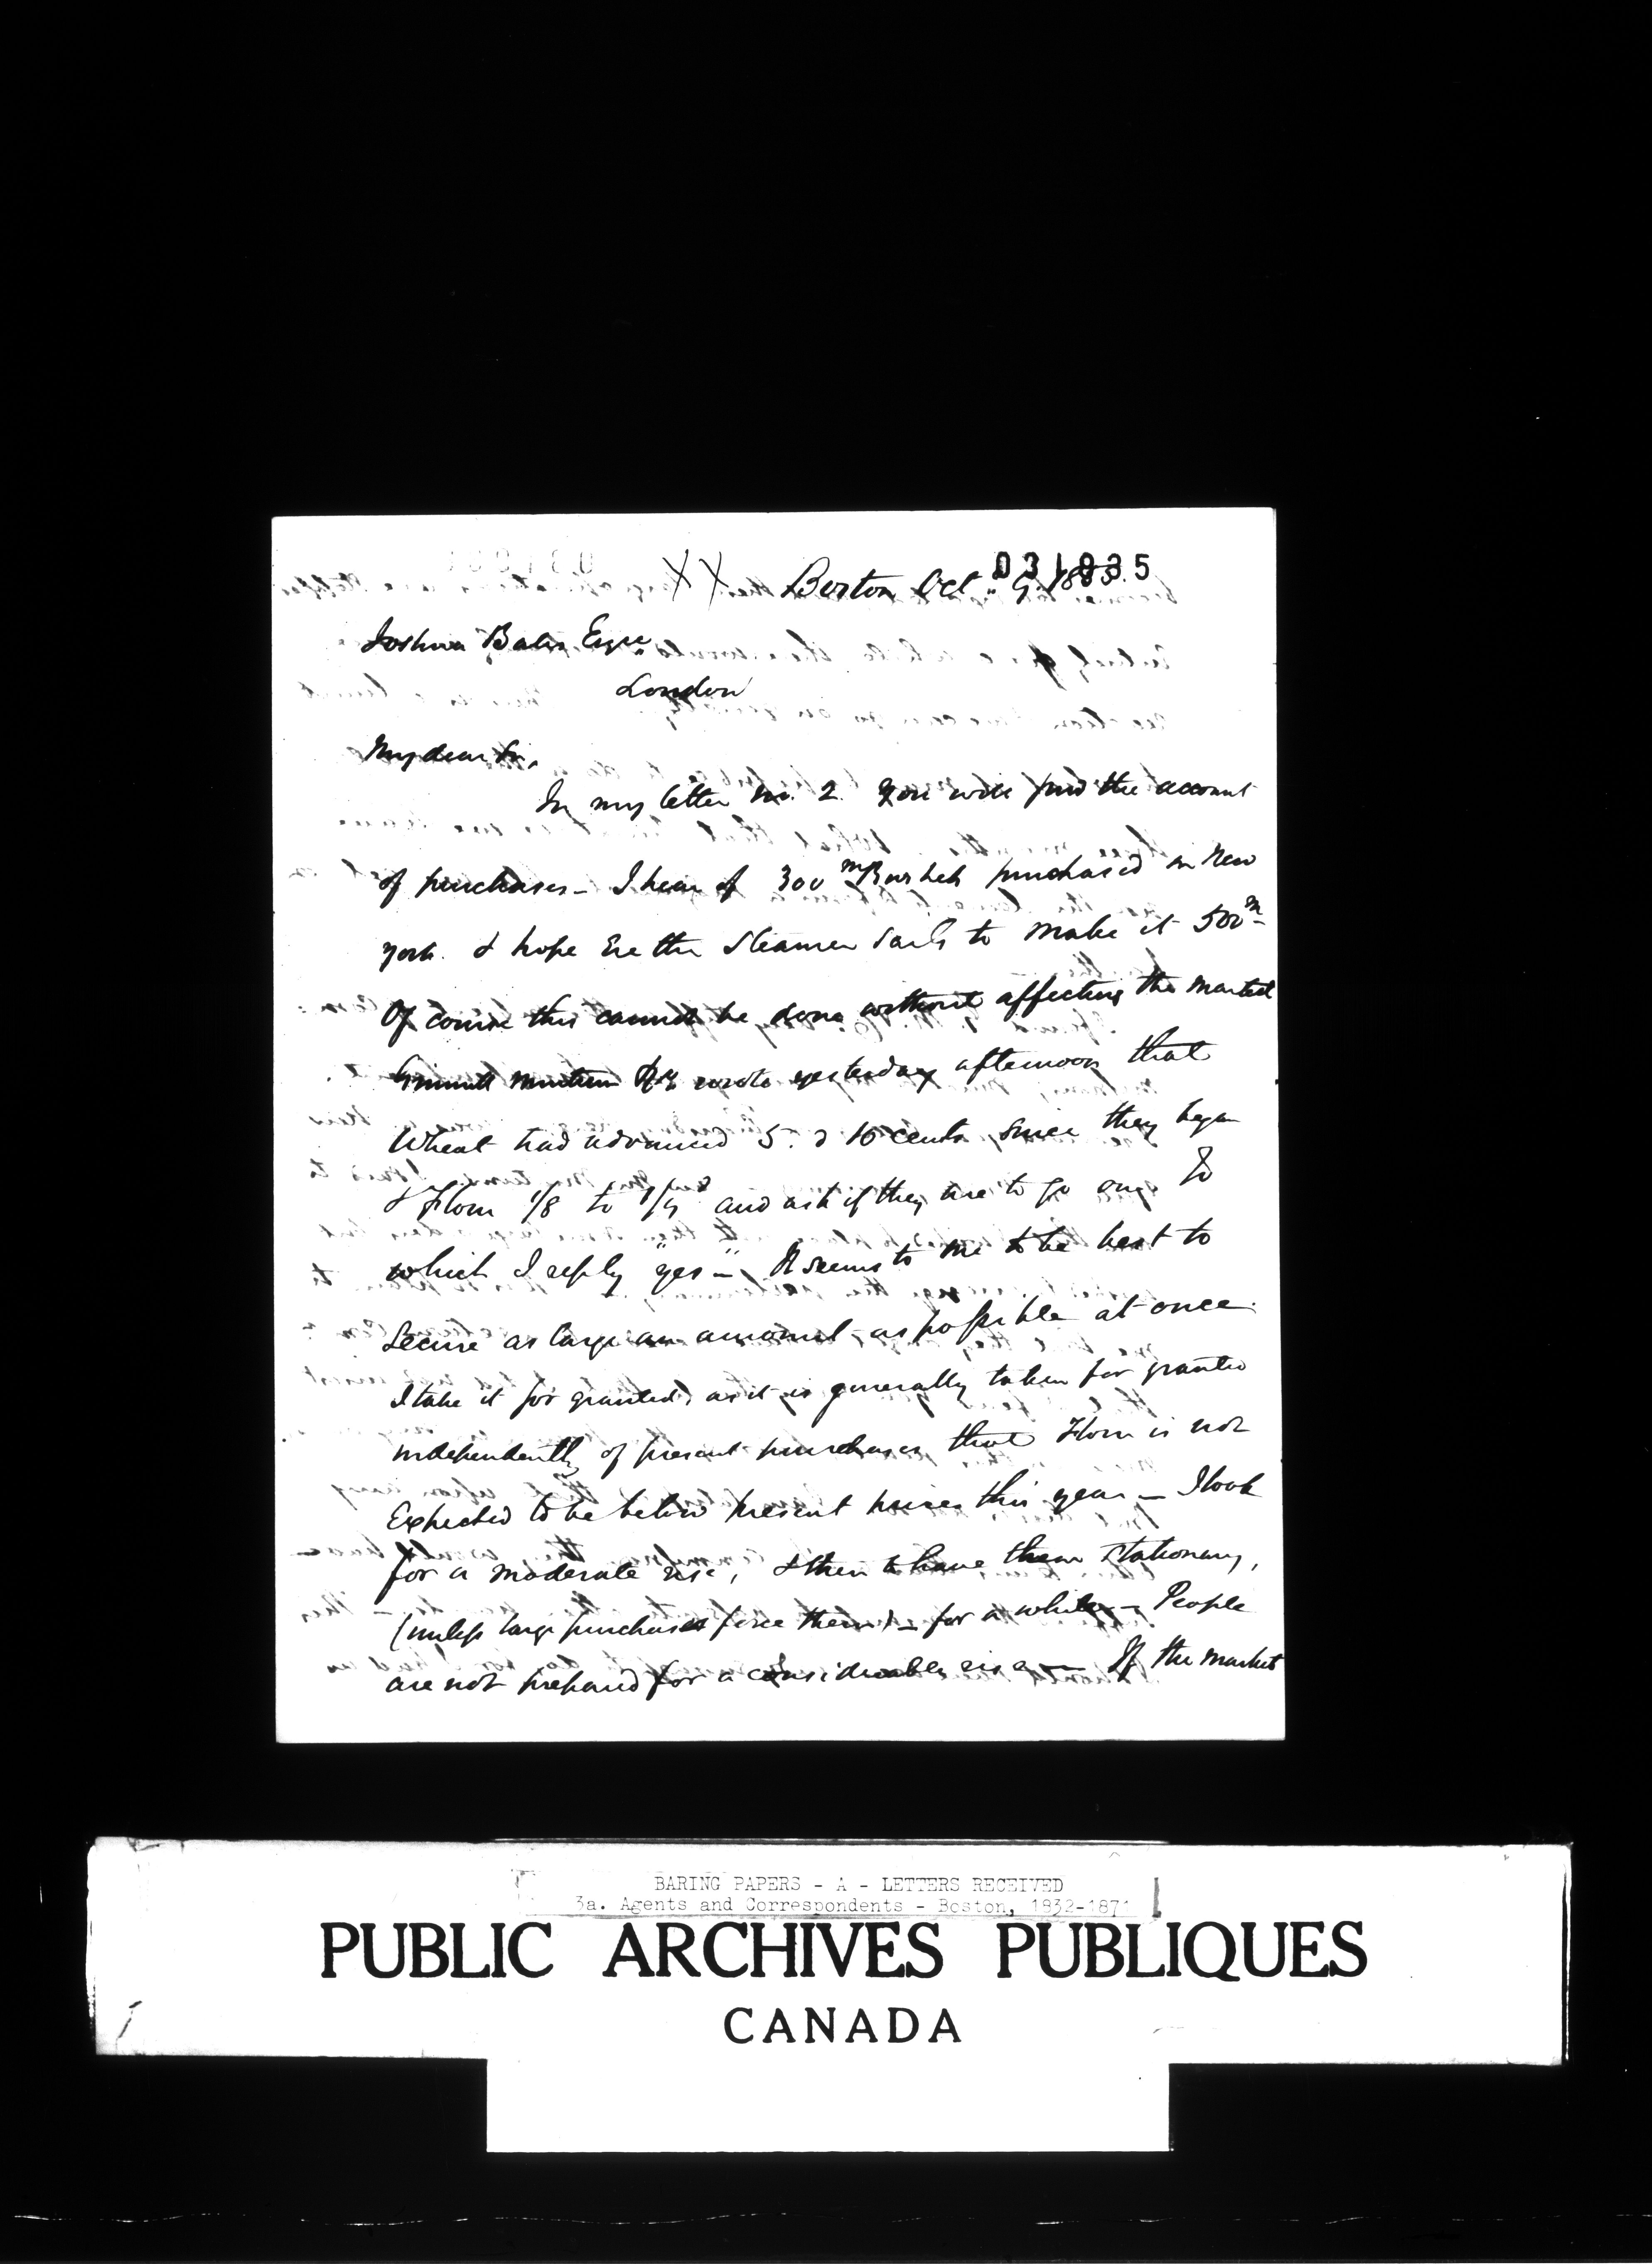 031935
XX Boston Oct. 9. 1855.
Joshua Bates Esqre
London
My dear Sir,
In my letter no. 2 you will find the account
of purchases – I hear of 300m Bushels purchased in New
York. & hope ere the Steamer sails to make it 500m –
Of course this cannot be done without affecting the market
Grinnell Minturn & Co wrote yesterday afternoon that
Wheat had advanced 5. @ 10 cents since they began
& Flour 1/8 to 1/4 and ask if they are to go on, To
which I reply "yes" – It seems to me to be best to
secure as large an amount as possible at once.
I take it for granted, as it is generally taken for granted
independently of present purchases, that Flour is not
expected to be below present prices this year – I look
for a moderate rise, & then to have them stationary,
(unless large purchases force them) – for a while – People
are not prepared for a considerable rise – If the market
BARING PAPERS - A - LETTERS RECEIVED
3a. Agents and Correspondents - Boston, 1832-1871
PUBLIC ARCHIVES PUBLIQUES
CANADA